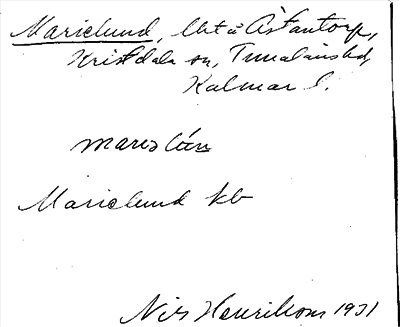 Marielund, lht å Åsfantorp,
Kristdala sn, Tunaläns hd,
Kalmar l.
Marielund kb
Nils Henrikson 1931